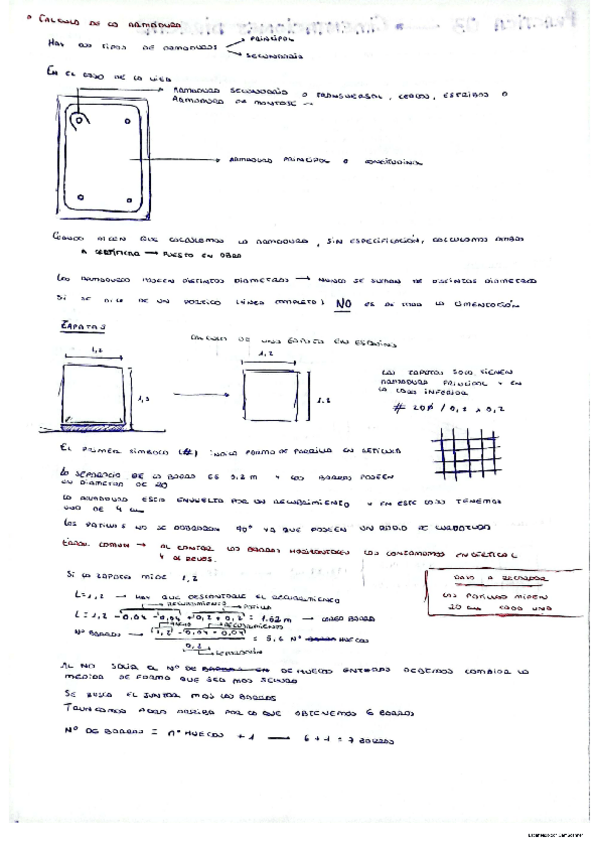 ° CALCULO DE LA ARMADURA
HAY DOS TIPOS DE ARMADURAS → PRINCIPAL
→ SECUNDARIA
EN EL CASO DE LA VIGA
ARMADURA SECUNDARIA O TRANSVERSAL, CERCOS, ESTRIBOS O
ARMADURA DE MONTAJE
ARMADURA PRINCIPAL O LONGITUDINAL
CUANDO DICEN QUE CALCULEMOS LA ARMADURA, SIN ESPECIFICACIÓN, CALCULAMOS AMBAS
A CERTIFICAR → PUESTO EN OBRA
LAS ARMADURAS POSEEN DISTINTOS DIAMETROS → NUNCA SE SUMAN DE DISTINTOS DIAMETROS
SI SE DICE DE UN PORTICO (LINEA COMPLETA) NO ES DE TODA LA CIMENTACIÓN
ZAPATAS
CALCULO DE UNA ZAPATA EN ESQUINA
1,2
1,2
LAS ZAPATAS SOLO TIENEN
ARMADURA PRINCIPAL Y EN
LA CARA INFERIOR
# 20Ø / 0,2 x 0,2
EL PRIMER SIMBOLO (#) INDICA FORMA DE PARRILLA EN RETICULA
LA SEPARACIÓ DE LA BARRA ES 0.2 m Y LAS BARRAS POSEEN
UN DIAMETRO DE 20
LA ARMADURA ESTA ENVUELTA POR UN RECUBRIMIENTO Y EN ESTE CASO TENEMOS
UNO DE 4 cm
LAS PATILLAS NO SE DOBLARAN 90° YA QUE POSEEN UN RADIO DE CURVATURA
ERROR COMUN → AL CONTAR LAS BARRAS HORIZONTALES LAS CONTAMOS EN VERTICAL
Y AL REVES.
SI LA ZAPATA MIDE 1,2
DATO A RECORDAR
LAS PATILLAS MIDEN
20 cm CADA UNA
L = 1,2 → HAY QUE DESCONTARLE EL RECUBRIMIENTO
RECUBRIMIENTO PATILLA
L = 1,2 - 0,04 - 0,04 + 0,2 + 0,2 = 1.52 m → CADA BARRA
RECUBRIMIENTOS
Nº BARRAS → 1,2 - 0,04 - 0,04 = 5,6 Nº HUECOS
0,2
SEPARACIÓN
AL NO SALIR EL Nº DE HUECOS ENTEROS DEBEMOS CAMBIAR LA
MEDIDA DE FORMA QUE SEA MAS SEGURO
SE BUSCA EL JUNTAR MAS LAS BARRAS
TRUNCAMOS HACIA ARRIBA POR LO QUE OBTENEMOS 6 BARRAS
Nº DE BARRAS = Nº HUECOS + 1 → 6 + 1 = 7 BARRAS